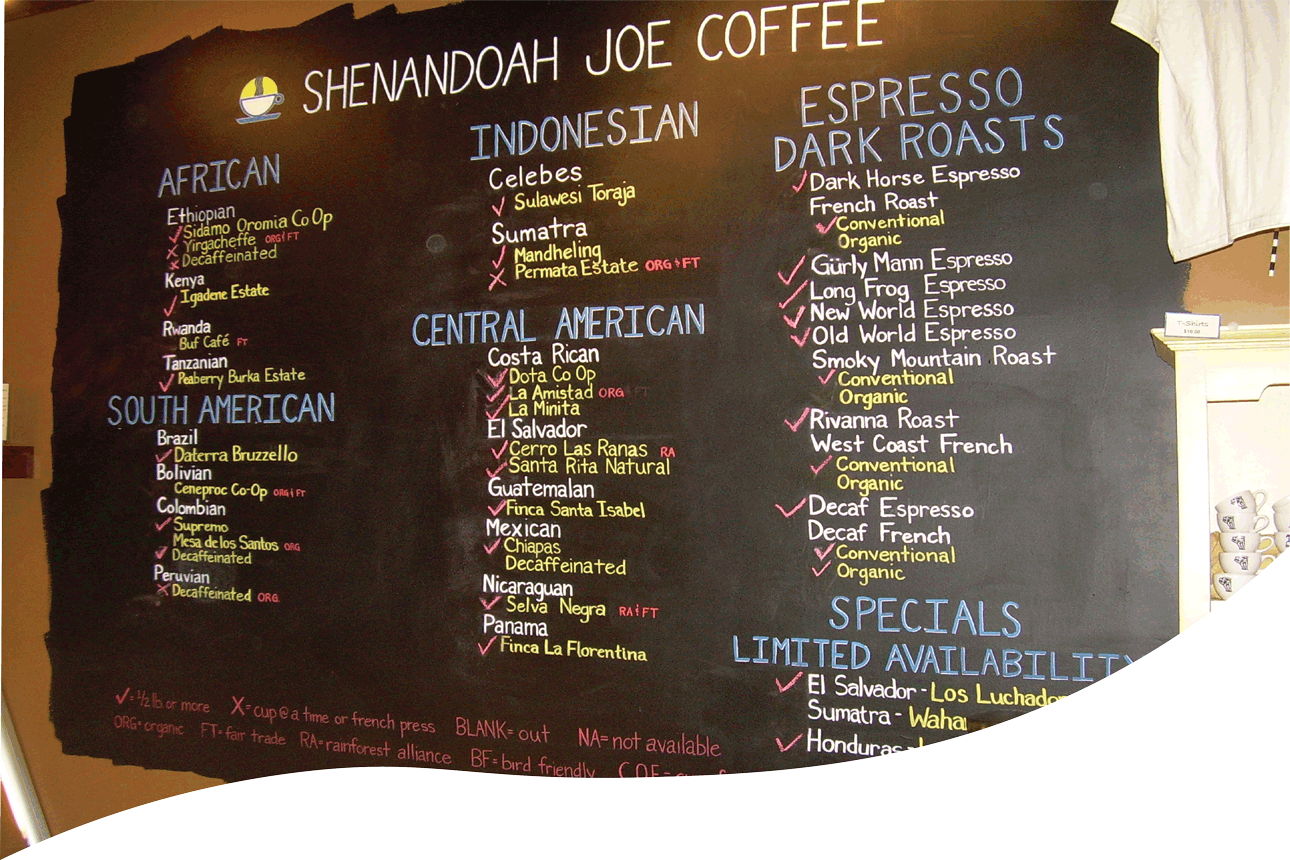 SHENANDOAH JOE COFFEE
AFRICAN
Ethiopian
✓ Sidamo Oromia Co Op
X Yirgacheffe ORG & FT
X Decaffeinated
Kenya
✓ Igadene Estate
Rwanda
Buf Café FT
Tanzanian
✓ Peaberry Burka Estate
SOUTH AMERICAN
Brazil
✓ Daterra Bruzzello
Bolivian
Ceneproc Co-Op ORG & FT
Colombian
✓ Supremo
Mesa de los Santos ORG
✓ Decaffeinated
Peruvian
X Decaffeinated ORG
INDONESIAN
Celebes
✓ Sulawesi Toraja
Sumatra
✓ Mandheling
X Permata Estate ORG & FT
CENTRAL AMERICAN
Costa Rican
✓ Dota Co Op
✓ La Amistad ORG
✓ La Minita
El Salvador
✓ Cerro Las Ranas RA
✓ Santa Rita Natural
Guatemalan
✓ Finca Santa Isabel
Mexican
✓ Chiapas
Decaffeinated
Nicaraguan
✓ Selva Negra RA & FT
Panama
✓ Finca La Florentina
ESPRESSO
DARK ROASTS
✓ Dark Horse Espresso
French Roast
✓ Conventional
Organic
✓ Gürly Mann Espresso
✓ Long Frog Espresso
✓ New World Espresso
✓ Old World Espresso
Smoky Mountain Roast
✓ Conventional
Organic
✓ Rivanna Roast
West Coast French
✓ Conventional
Organic
✓ Decaf Espresso
Decaf French
✓ Conventional
✓ Organic
SPECIALS
LIMITED AVAILABILITY
✓ El Salvador - Los Luchador
Sumatra - Waha
✓ Honduras -
✓ = 1/2 lb or more X = cup @ a time or french press BLANK = out NA = not available
ORG = organic FT = fair trade RA = rainforest alliance BF = bird friendly COE =
T-Shirts